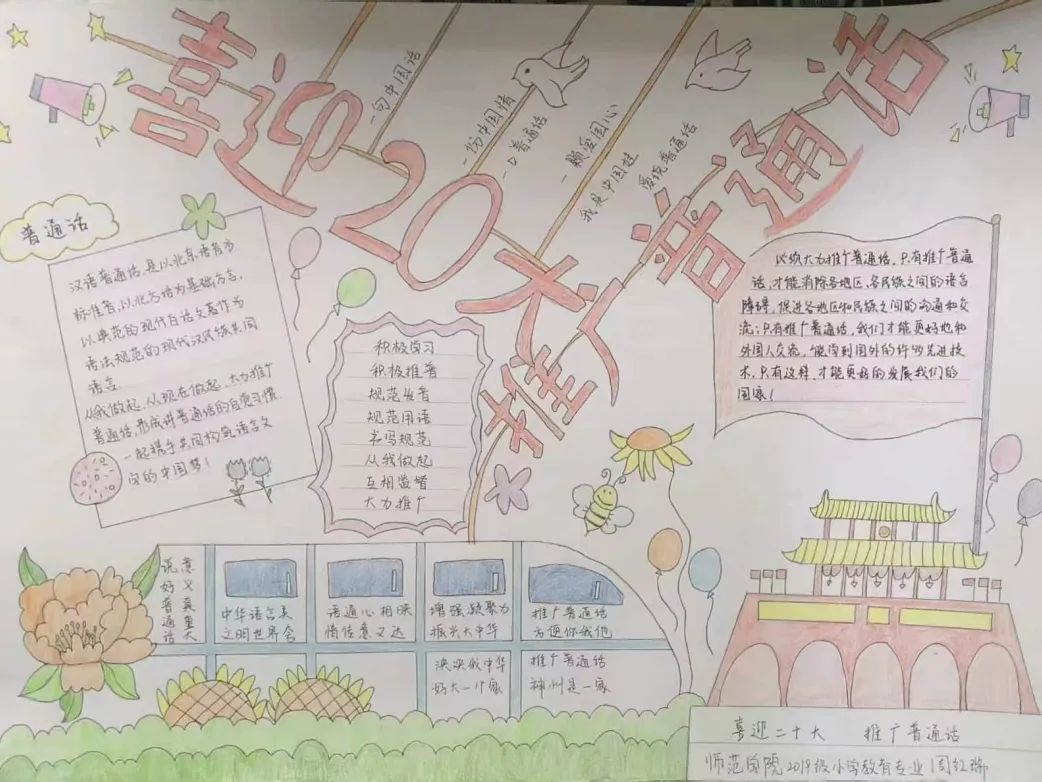 喜迎20大
推广普通话
一句中国话
一份中国情
一口普通话
一颗爱国心
我是中国娃
爱说普通话
普通话
汉语普通话,是以北京语音为
标准音,以北方话为基础方言,
以典范的现代白话文著作为
语法规范的现代汉民族共同
语言
从我做起,从现在做起,大力推广
普通话,形成讲普通话的自觉习惯.
一起携手共同构筑语言文
字的中国梦!
积极学习
积极推普
规范发音
规范用语
书写规范
从我做起
互相监督
大力推广
必须大力推广普通话,只有推广普通
话,才能消除各地区、各民族之间的语言
障碍,促进各地区和民族之间的沟通和交
流;只有推广普通话,我们才能更好地和
外国人交流,能学到国外的许多先进技
术,只有这样,才能更好的发展我们的
国家!
说好普通话
意义真重大
中华语言美
文明世界会
语通心相映
情传意又达
增强凝聚力
振兴大中华
推广普通话
方便你我他
泱泱我中华
好大一个家
推广普通话
神州是一家
喜迎二十大 推广普通话
师范学院2019级小学教育专业1周红瑞